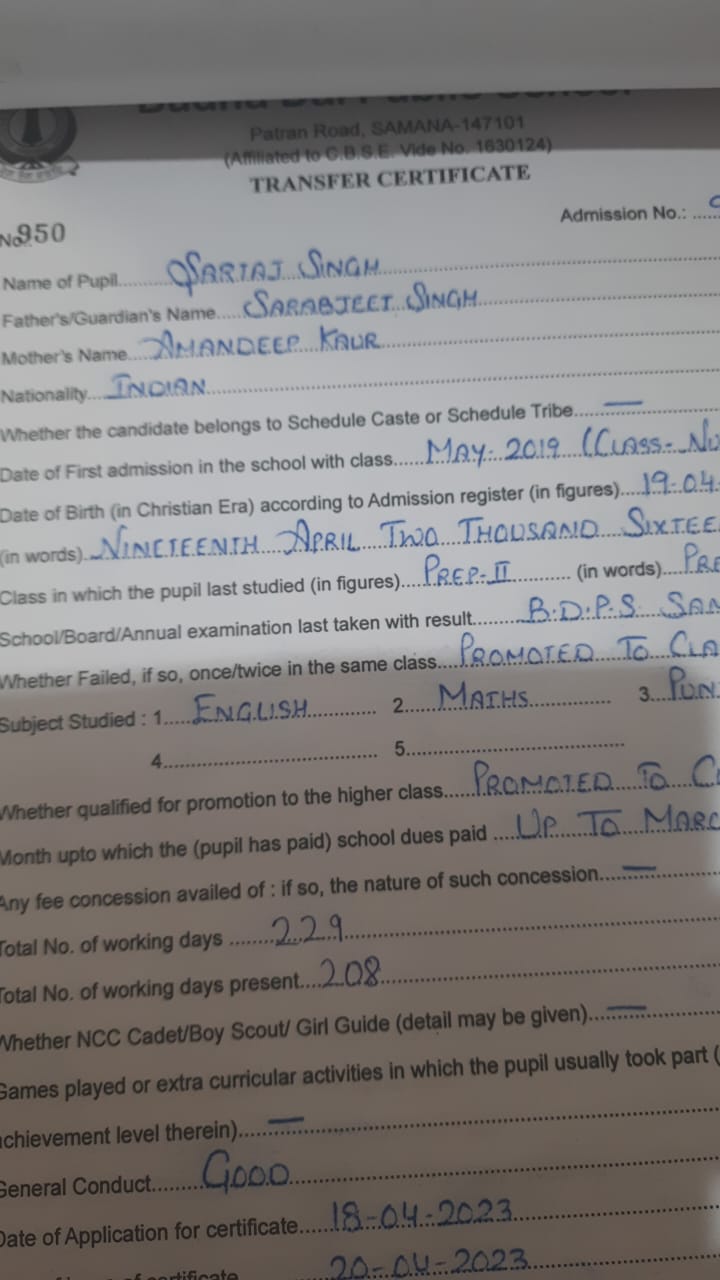 Patran Road, SAMANA-147101
(Affiliated to C.B.S.E. Vide No. 1630124)
TRANSFER CERTIFICATE
No. 950
Admission No.:
Name of Pupil SARTAJ SINGH
Father's/Guardian's Name SARABJEET SINGH
Mother's Name AMANDEEP KAUR
Nationality INDIAN
Whether the candidate belongs to Schedule Caste or Schedule Tribe —
Date of First admission in the school with class MAY-2019 (CLASS-NU
Date of Birth (in Christian Era) according to Admission register (in figures) 19-04-
(in words) NINETEENTH APRIL TWO THOUSAND SIXTEE
Class in which the pupil last studied (in figures) PREP-II (in words) PRE
School/Board/Annual examination last taken with result B.D.P.S. SAM
Whether Failed, if so, once/twice in the same class PROMOTED TO CLA
Subject Studied : 1 ENGLISH 2 MATHS 3 PUN
4 5
Whether qualified for promotion to the higher class PROMOTED TO CL
Month upto which the (pupil has paid) school dues paid UP TO MARC
Any fee concession availed of : if so, the nature of such concession —
Total No. of working days 229
Total No. of working days present 208
Whether NCC Cadet/Boy Scout/ Girl Guide (detail may be given) —
Games played or extra curricular activities in which the pupil usually took part (
achievement level therein) —
General Conduct GOOD
Date of Application for certificate 18-04-2023
certificate 20-04-2023